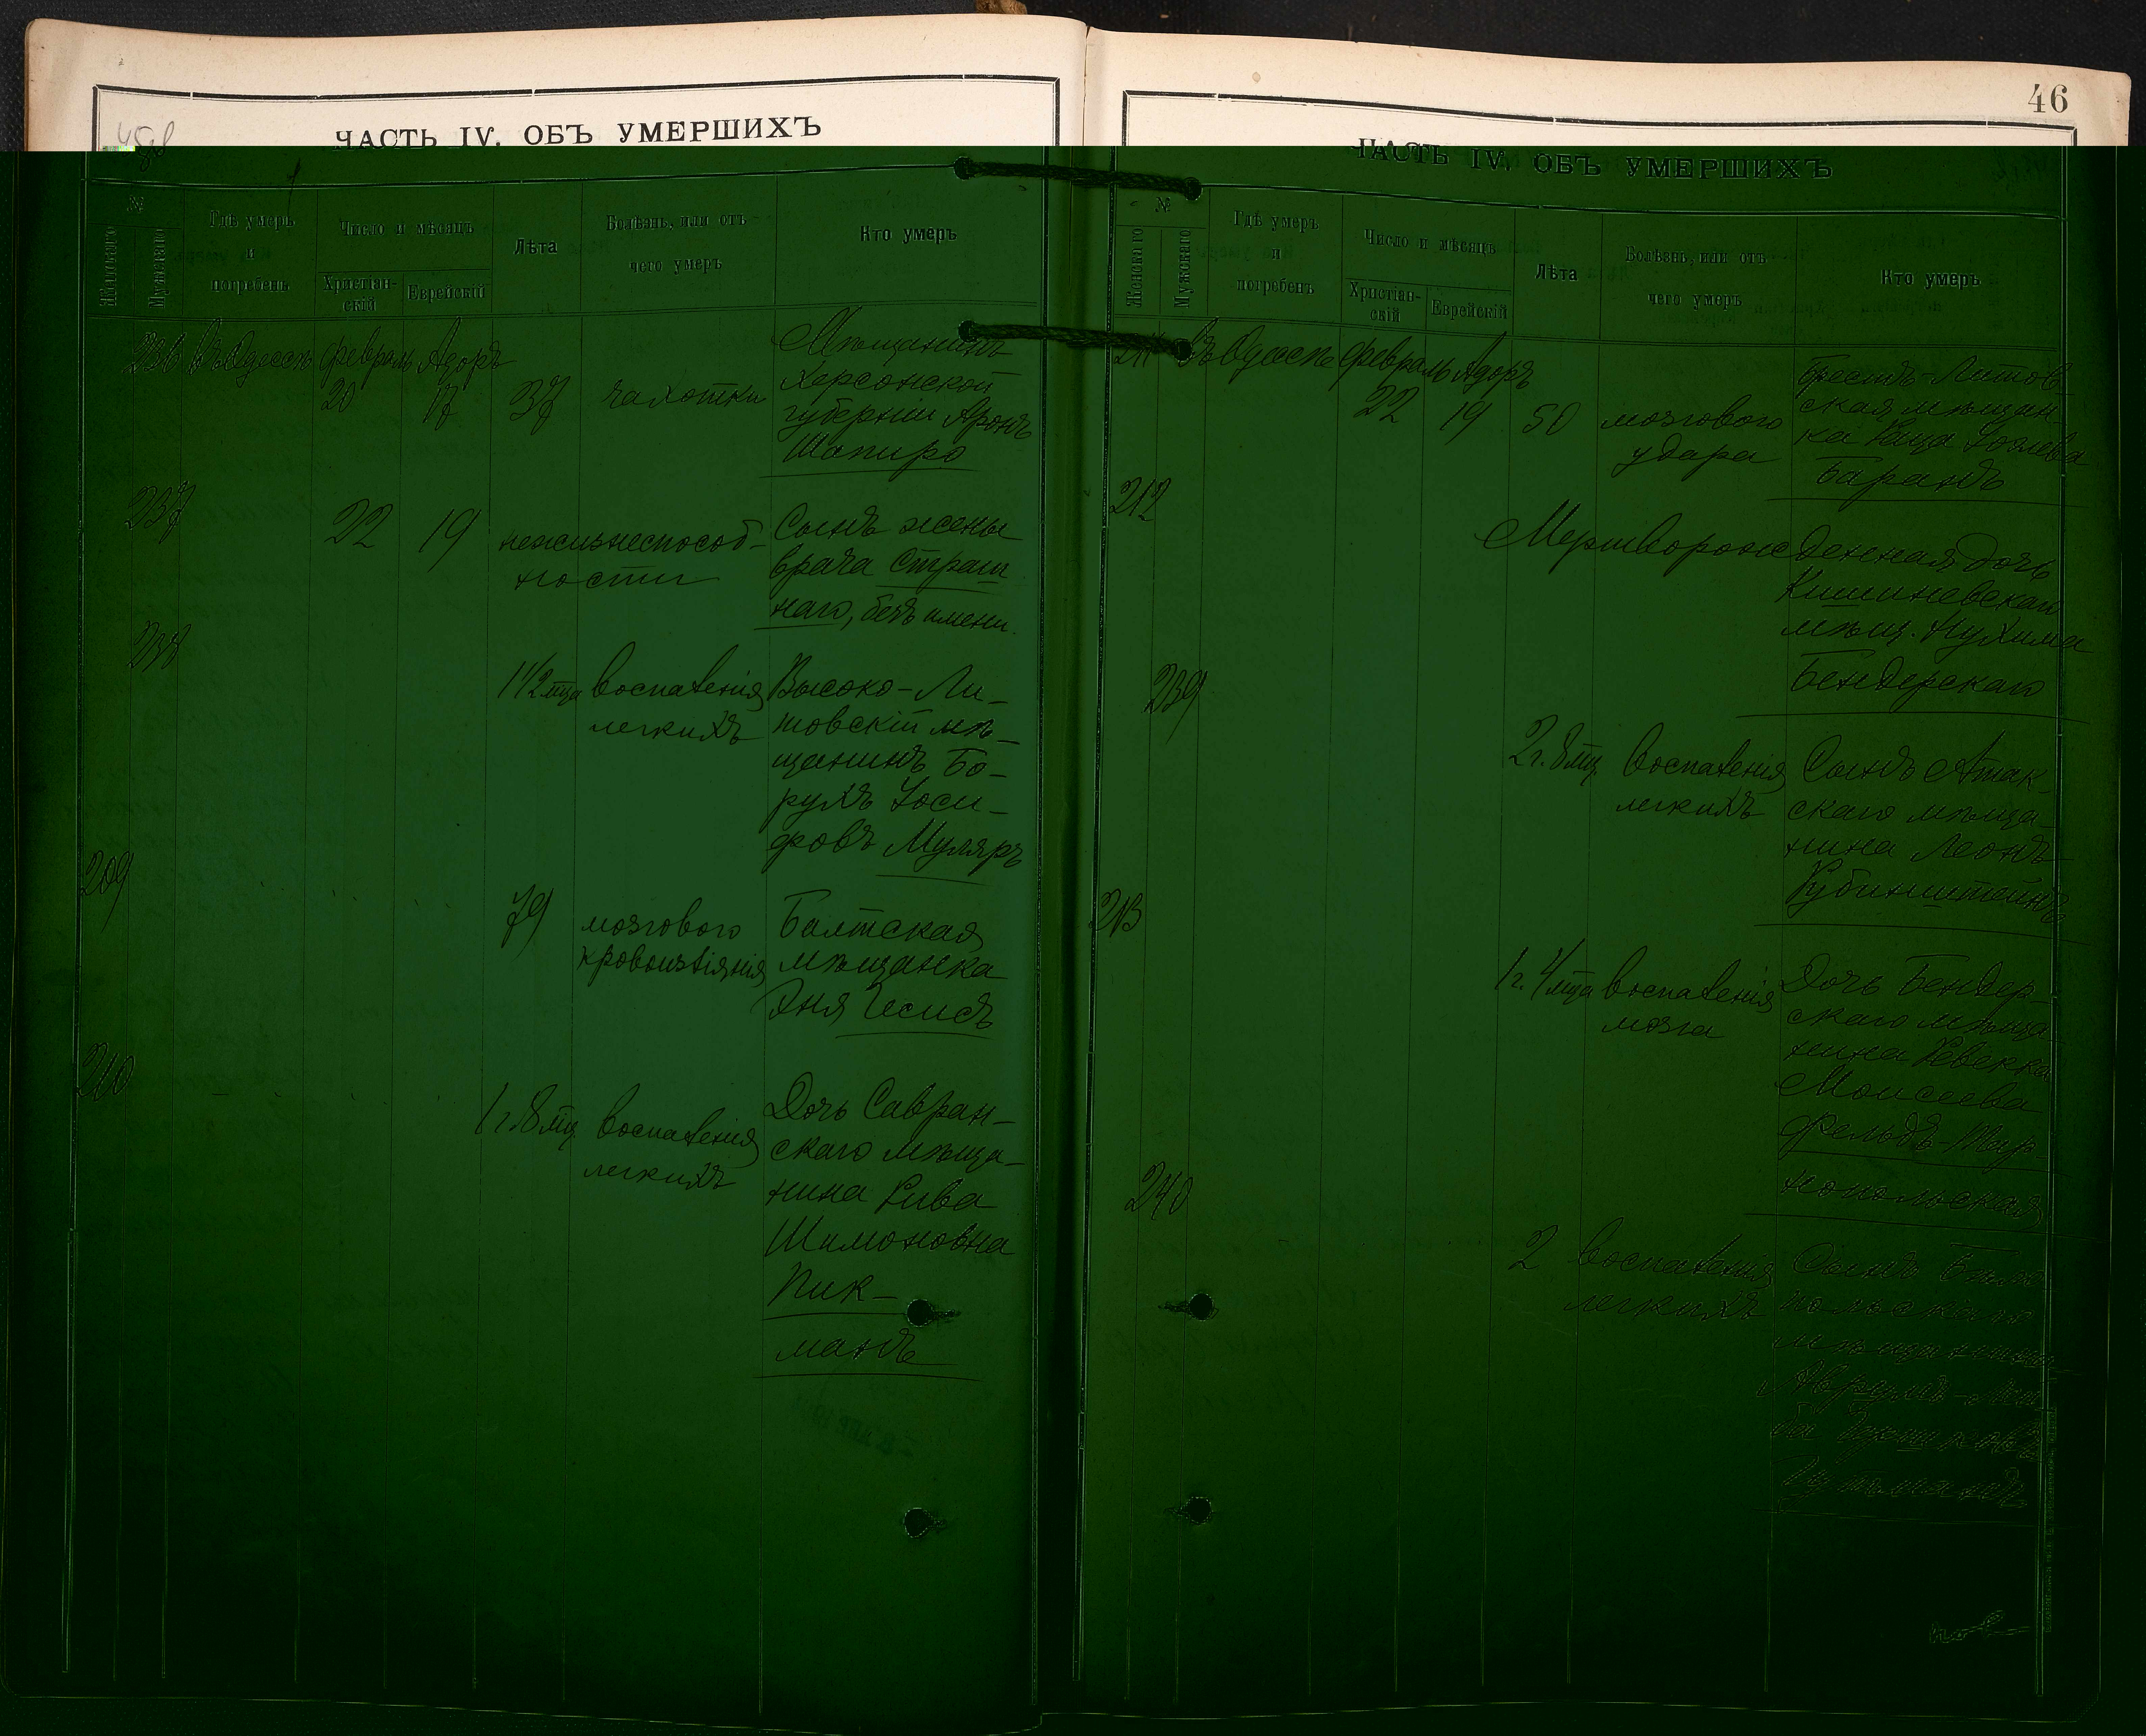 46
ЧАСТЬ IV. ОБЪ УМЕРШИХЪ
№
Женскаго
Мужскаго
Гдѣ умеръ
и
погребенъ
Число и мѣсяцъ
Христіан-
скій
Еврейскій
Лѣта
Болѣзнь, или отъ
чего умеръ
Кто умеръ
236 въ Одессѣ февраль Адоръ
20 17 37 чахотки
Мѣщанинъ
Херсонской
губерніи Аронъ
Шапиро
237
22 19 нежизнеспособ-
ности
Сынъ жены
врача Страш
наго, безъ имени.
238
1 1/2 мца воспаленія
легкихъ
Высоко-Ли-
товскій мѣ-
щанинъ Бо-
рухъ Іоси-
фовъ Муляръ
209
79 мозгового
кровоизліянія
Балтская
мѣщанка
Эня Чесисъ
210
1 г. 8 мц. воспаленія
легкихъ
Дочь Савран-
скаго мѣща-
нина Рива
Шимоновна
Пик-
манъ
ЧАСТЬ IV. ОБЪ УМЕРШИХЪ
№
Женскаго
Мужскаго
Гдѣ умеръ
и
погребенъ
Число и мѣсяцъ
Христіан-
скій
Еврейскій
Лѣта
Болѣзнь, или отъ
чего умеръ
Кто умеръ
211 въ Одессѣ февраль Адоръ
22 19 50 мозгового
удара
Брестъ-Литов-
ская мѣщан
ка
Баранъ
212
Мертворожденная дочь
Кишиневскаго
мѣщ. Нухима
Бендерскаго
239
2 г. 8 мц. воспаленія
легкихъ
Сынъ Атак-
скаго мѣща-
нина Леонъ
Рубинштейнъ
213
1 г. 4 мца воспаленія
мозга
Дочь Бендер-
скаго мѣща-
нина Ревекка
Моисеева
Фельдъ-Тар
нопольская
240
2 воспаленія
легкихъ
Сынъ
польскаго
мѣщанина
Гутманъ